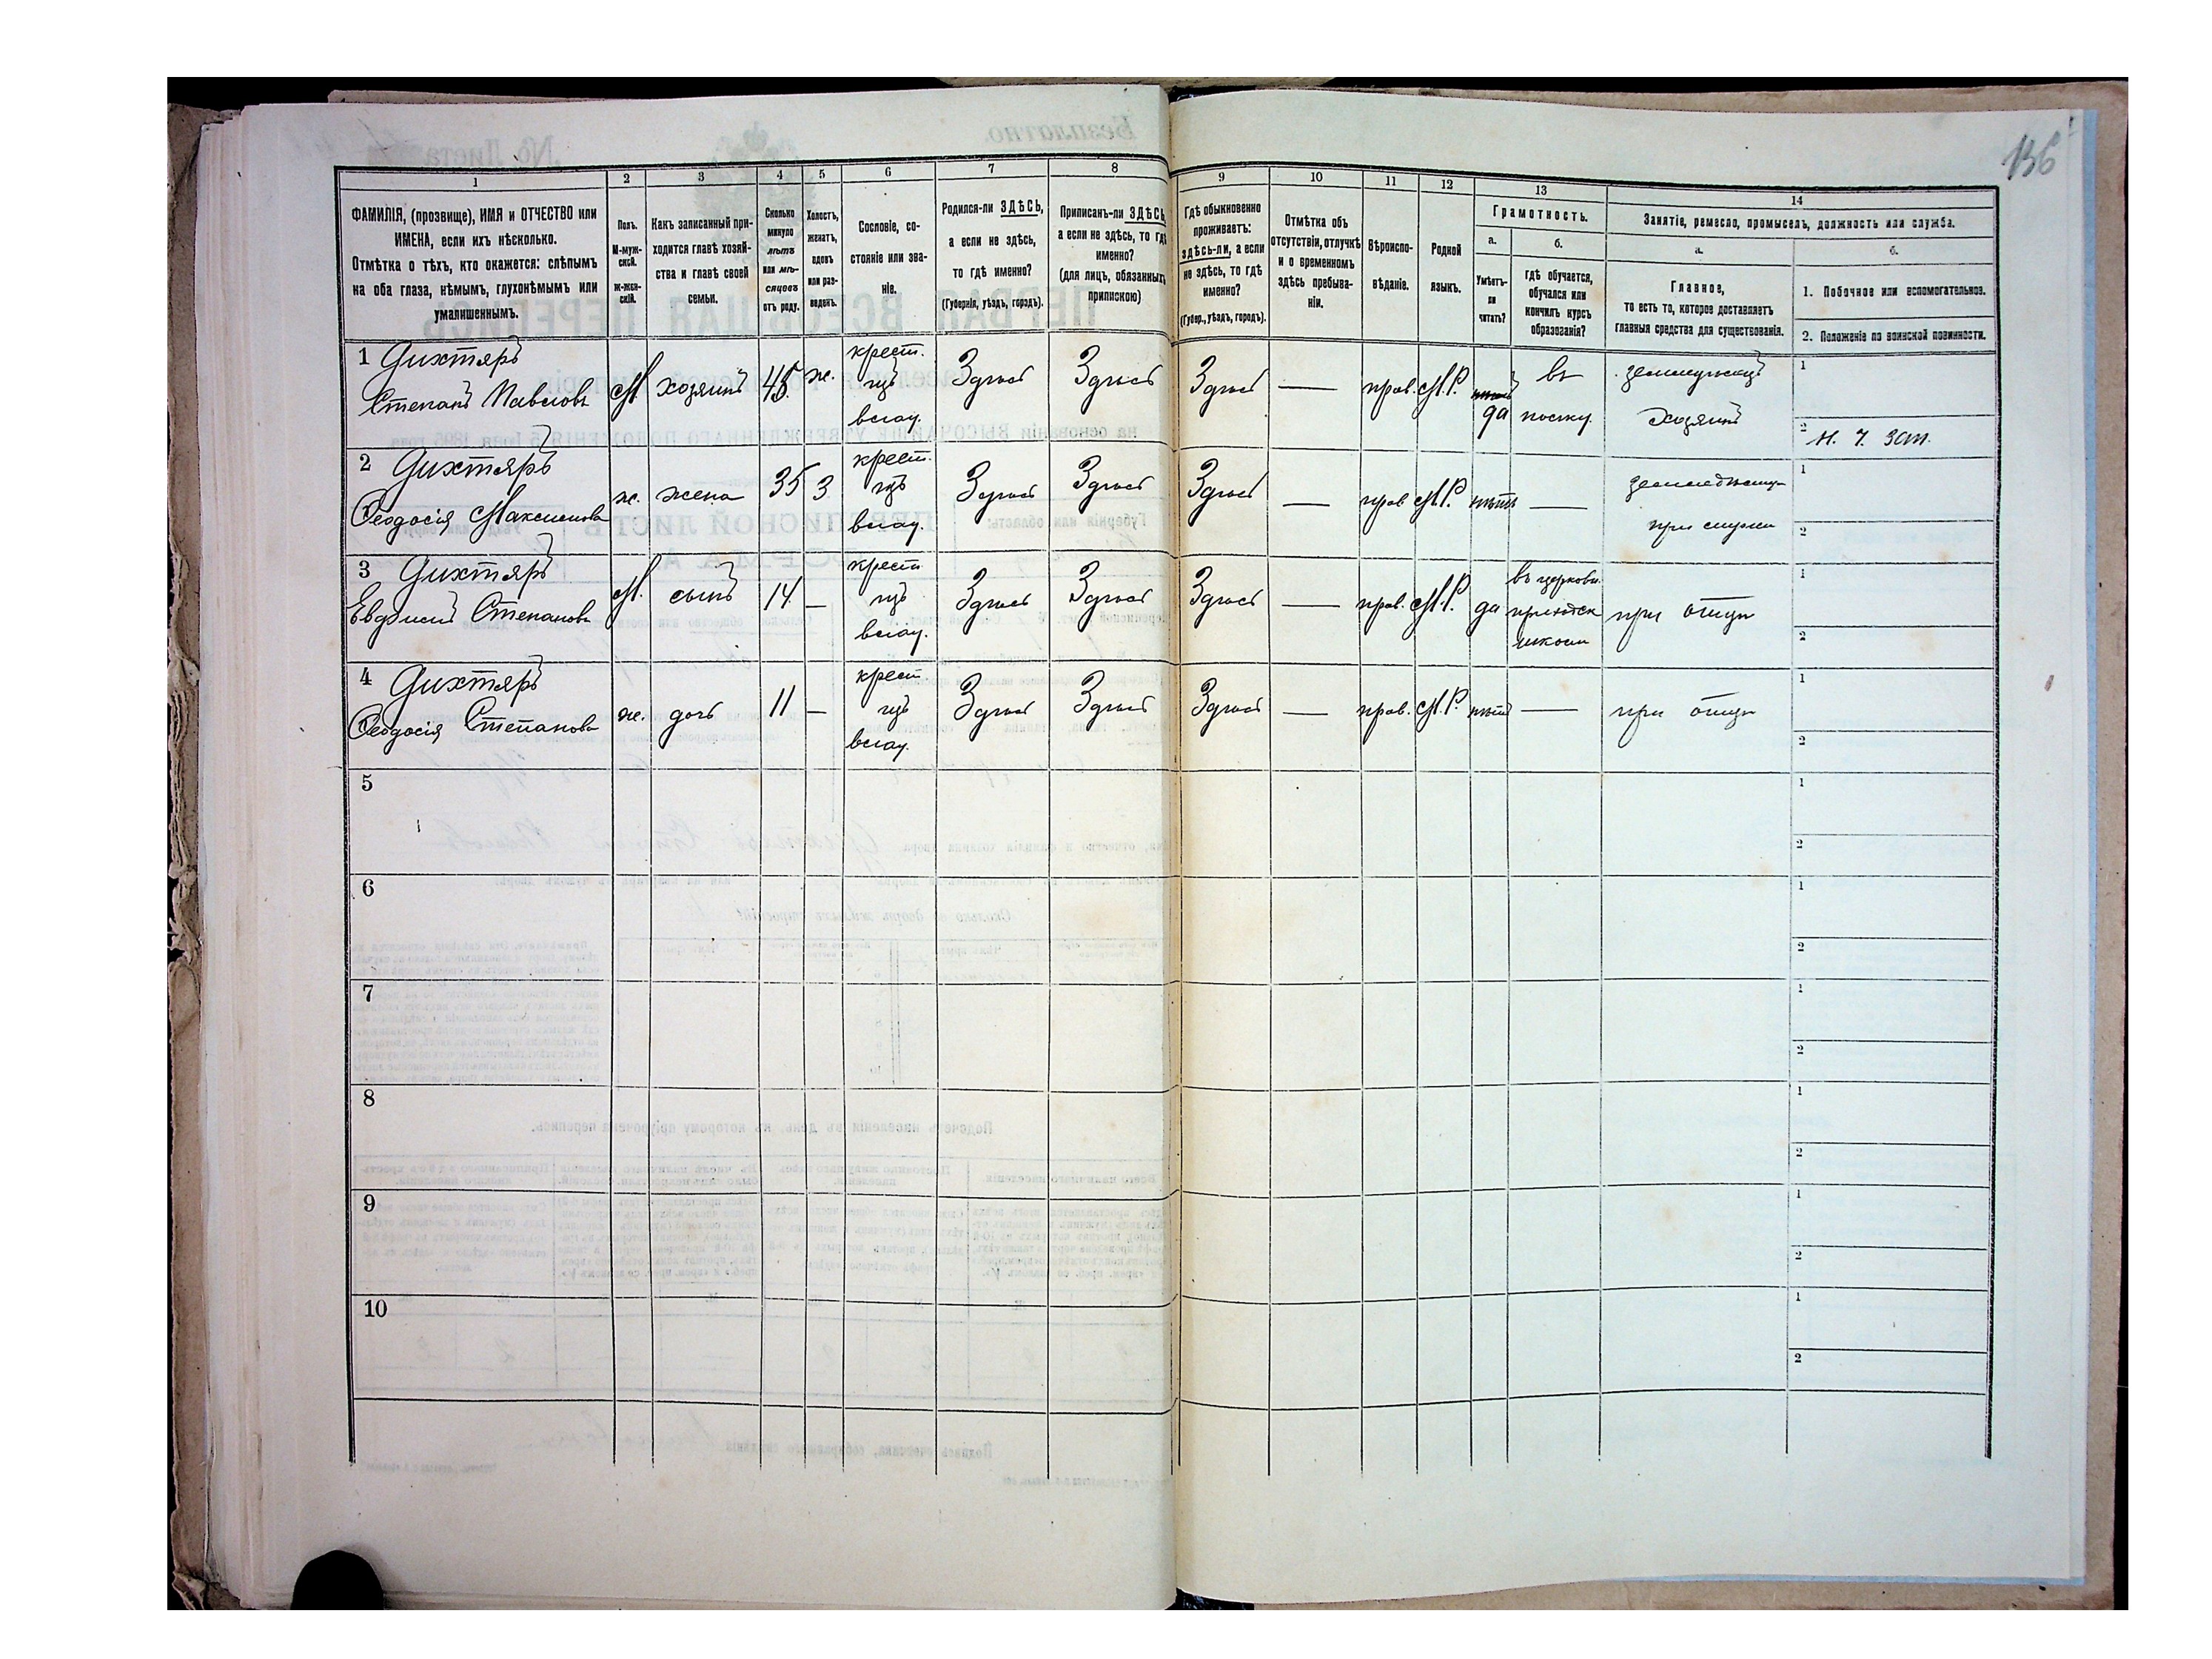 136
1 2 3 4 5 6 7 8 9 10 11 12 13 14
ФАМИЛІЯ, (прозвище), ИМЯ и ОТЧЕСТВО или
ИМЕНА, если ихъ нѣсколько.
Отмѣтка о тѣхъ, кто окажется: слѣпымъ
на оба глаза, нѣмымъ, глухонѣмымъ или
умалишеннымъ.
Полъ.
М-муж-
ской.
ж-жен-
скій.
Какъ записанный при-
ходится главѣ хозяй-
ства и главѣ своей
семьи.
Сколько
минуло
лѣтъ
или мѣ-
сяцевъ
отъ роду.
Холостъ,
женатъ,
вдовъ
или раз-
веденъ.
Сословіе, со-
стояніе или зва-
ніе.
Родился-ли ЗДѢСЬ,
а если не здѣсь,
то гдѣ именно?
(Губернія, уѣздъ, городъ).
Приписанъ-ли ЗДѢСЬ,
а если не здѣсь, то гдѣ
именно?
(для лицъ, обязанныхъ
припискою)
Гдѣ обыкновенно
проживаетъ:
здѣсь-ли, а если
не здѣсь, то гдѣ
именно?
(Губер., уѣздъ, городъ).
Отмѣтка объ
отсутствіи, отлучкѣ
и о временномъ
здѣсь пребыва-
ніи.
Вѣроиспо-
вѣданіе.
Родной
языкъ.
Грамотность.
а.
Умѣетъ-
ли
читать?
б.
гдѣ обучается,
обучался или
кончилъ курсъ
образованія?
Занятіе, ремесло, промыселъ, должность или служба.
а.
Главное,
то есть то, которое доставляетъ
главныя средства для существованія.
б.
1. Побочное или вспомогательное.
2. Положеніе по воинской повинности.
1 Дихтяръ
Степанъ Павловъ
М
хозяинъ
45
ж.
крест.
Здѣсь
Здѣсь
Здѣсь
—
прав.
М.Р.
да
въ
хозяинъ
1
2
2 Дихтяръ
Феодосія Максимова
ж.
жена
35
З
крест.
Здѣсь
Здѣсь
Здѣсь
—
прав
М.Р.
нѣтъ
—
при мужи
1
2
3 Дихтяръ
Евфимій Степановъ
М.
сынъ
14
—
крест
Здѣсь
Здѣсь
Здѣсь
—
прав.
М.Р.
да
въ церковн.
приходск
школи
при отцѣ
1
2
4 Дихтяръ
Феодосія Степанова
ж.
дочь
11
—
крест
Здѣсь
Здѣсь
Здѣсь
—
прав.
М.Р.
нѣтъ
—
при отцѣ
1
2
5
1
2
6
1
2
7
1
2
8
1
2
9
1
2
10
1
2